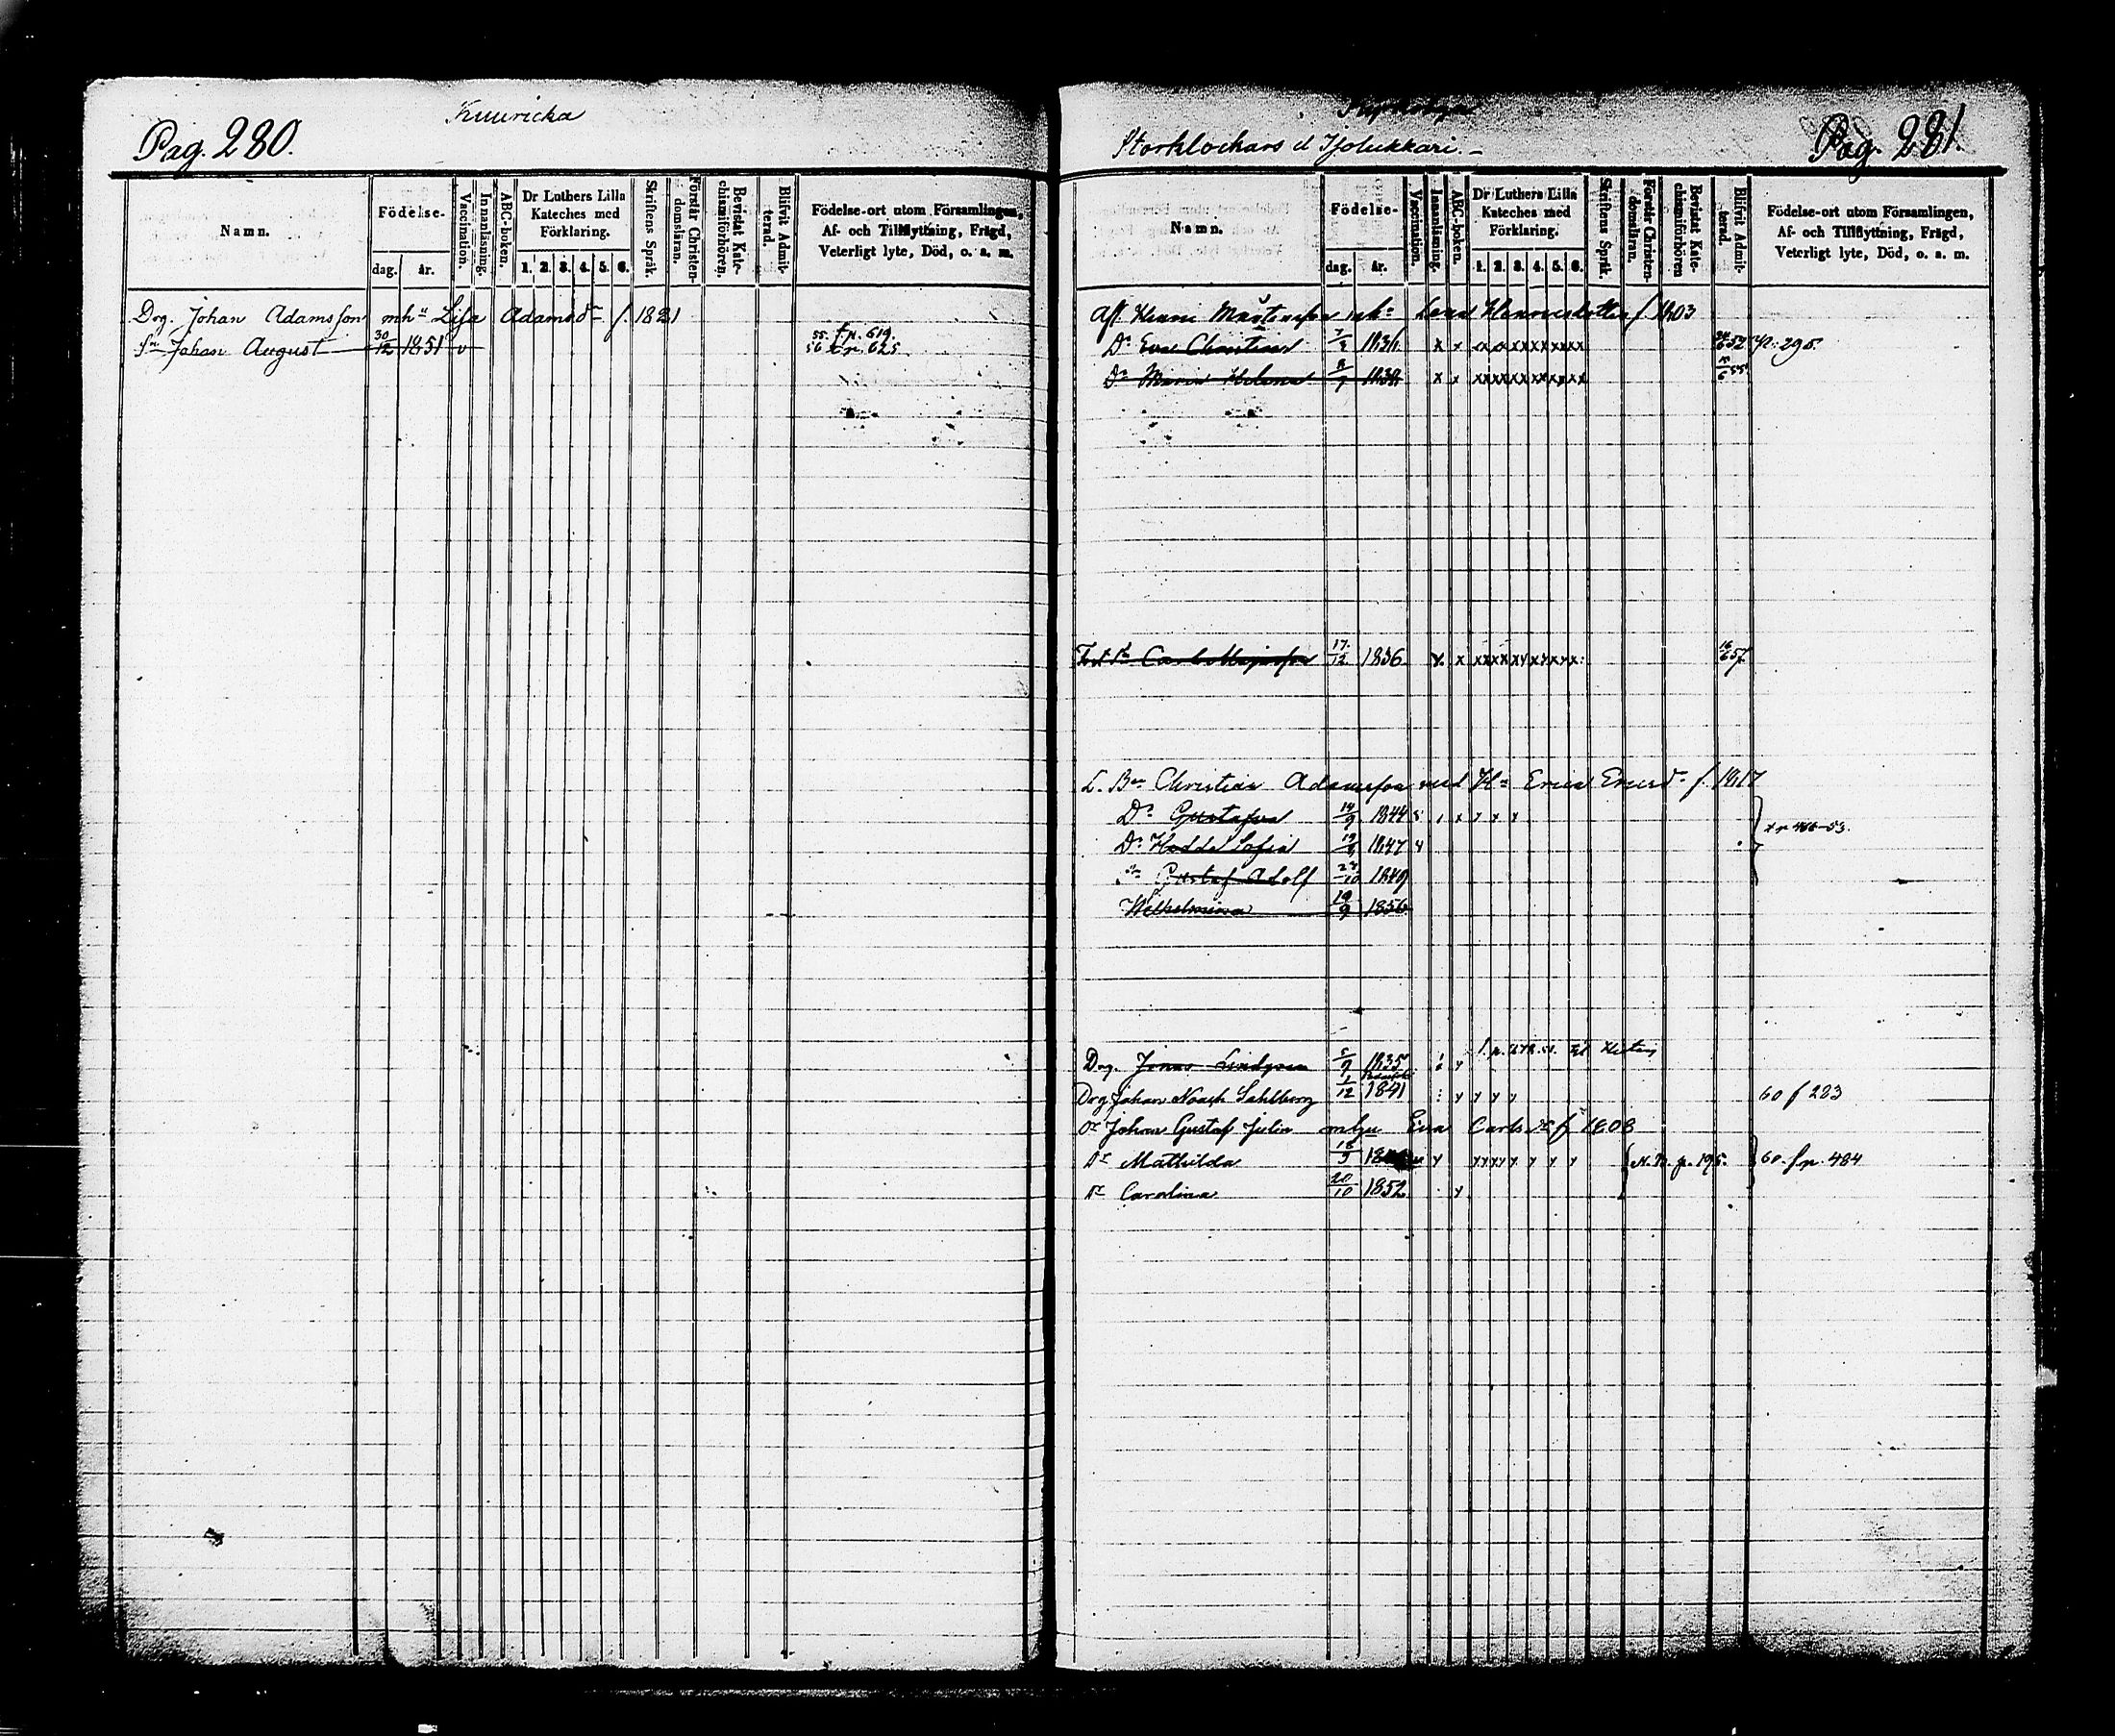 Kuuricka
Pag. 280.
Namn.
Födelse-
dag. år.
Vaccination.
Innanläsning.
ABC-boken.
Dr Luthers Lilla Kateches med Förklaring.
1. 2. 3. 4. 5. 6.
Skriftens Språk.
Förstår Christen-domsläran.
Bevistat Kate-chismiförhören.
Blifvit Admit-terad.
Födelse-ort utom Församlingen, Af- och Tillflyttning, Frägd, Veterligt lyte, Död, o. s. m.
Drg. Johan Adamsson mhu Lisa Adamsdr f. 1821
Sn Johan August 30/12 1851 v 55 fr. 619. 56 tr. 625.
Storklockars et Isolukkari.
Pag. 281.
Namn.
Födelse-
dag. år.
Vaccination.
Innanläsning.
ABC-boken.
Dr Luthers Lilla Kateches med Förklaring.
1. 2. 3. 4. 5. 6.
Skriftens Språk.
Förstår Christen-domsläran.
Bevistat Kate-chismiförhören
Blifvit Admit-terad.
Födelse-ort utom Församlingen, Af- och Tillflyttning, Frägd, Veterligt lyte, Död, o. s. m.
Afl. Henric Mårtensson enka Lena Henricsdotter f. 1803
Dr Eva Christina x x x x x x x x x x p. 295.
Dr Maria Helena x x x x x x x x x x
Carl 17/12 1836 x x x x x x x x x 57
L. Bn Christian Adamsson med Hu Erica Ericsdr f. 1817
Dr Gustafva 14/9 1844
Dr Hedda Sofia 1847
Sn Gustaf Adolf 1849
Wilhelmina 19/9 1856
Drg. Jonas 5/9 1835
Drg Johan Noach Sahlberg 1/12 1841 y y y y 60 f 283
Johan Gustaf Julin mhu Eva Carlsdr f 1808
Dr Mathilda 18/9 y y y y y y y y p. 195. 60. fr. 484
Dr Carolina 20/10 1852 y